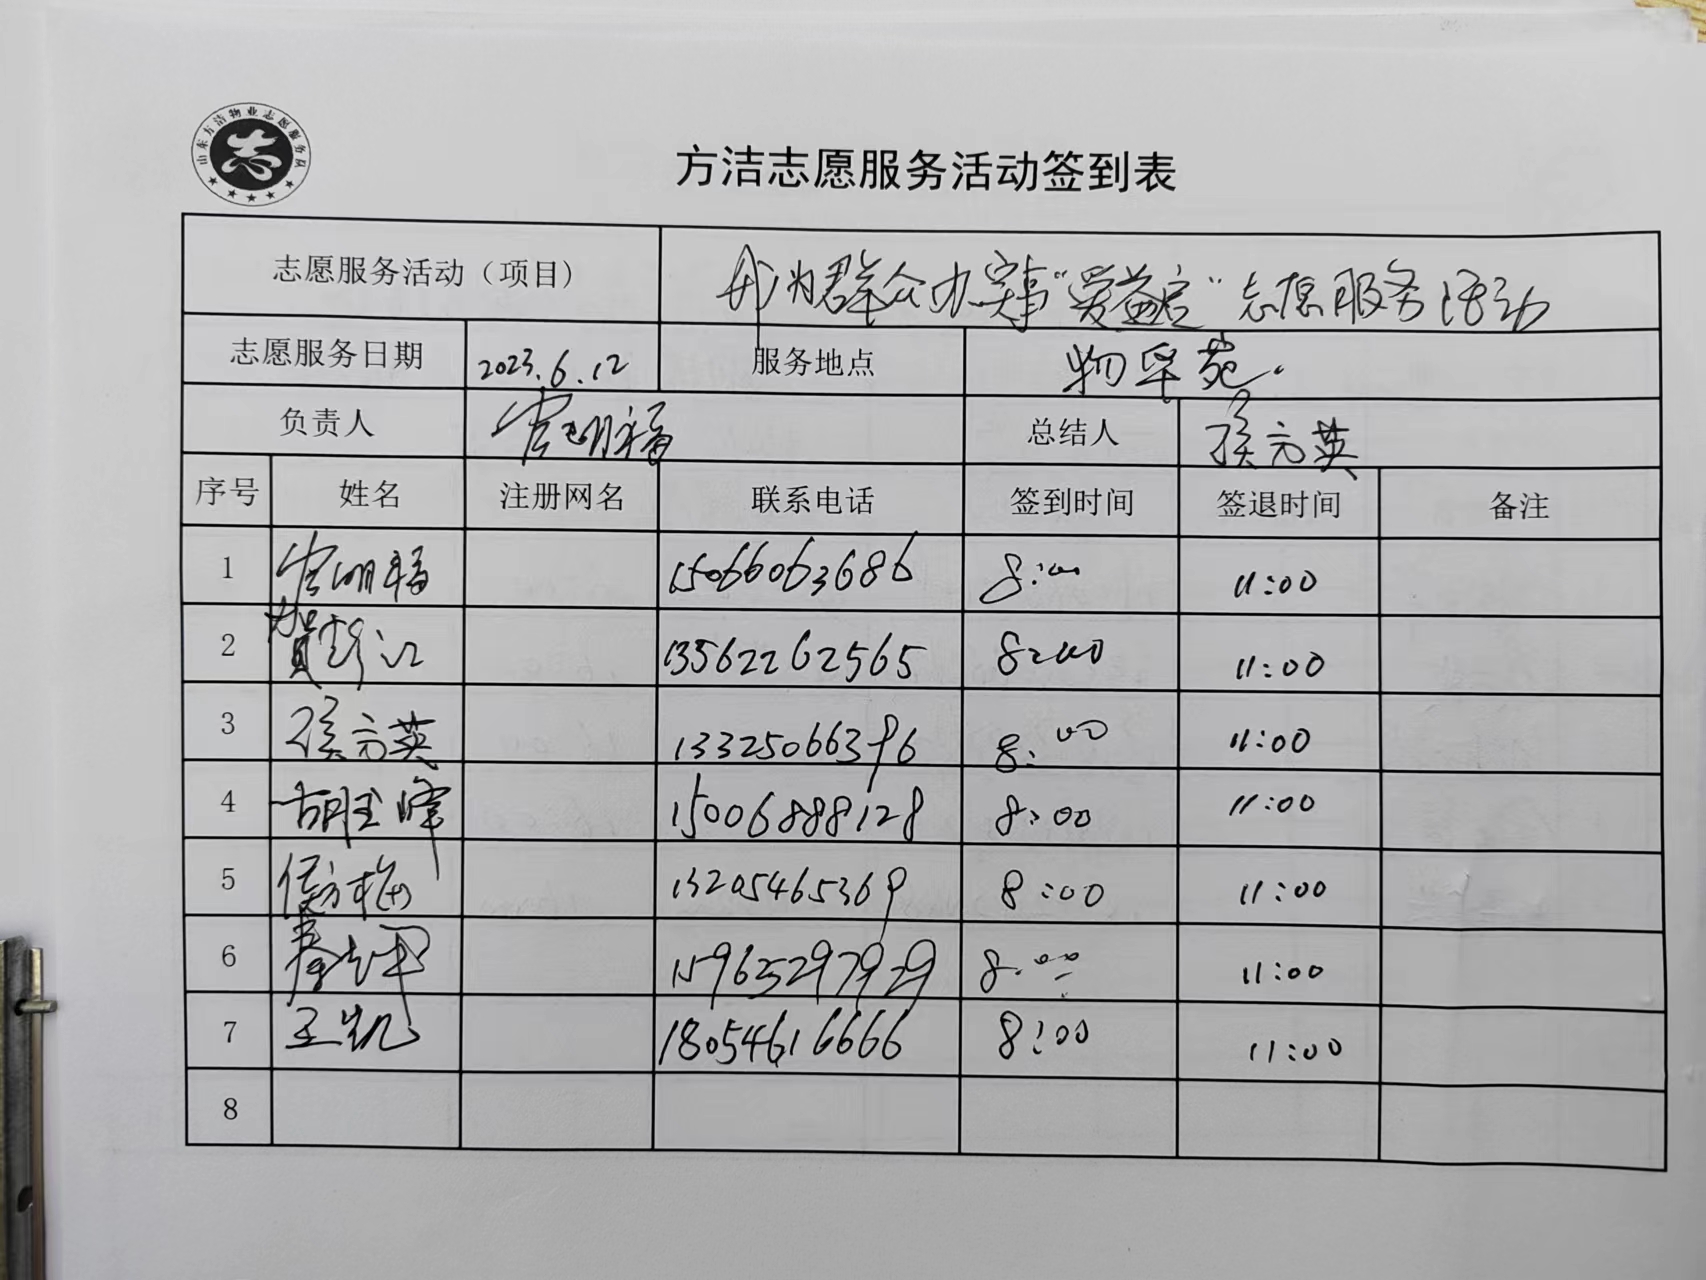 山东方洁物业志愿服务队
志
方洁志愿服务活动签到表
志愿服务活动（项目） 我为群众办实事“爱益家”志愿服务活动
志愿服务日期 2023.6.12 服务地点 物华苑.
负责人 宋明福 总结人 侯方英
序号 姓名 注册网名 联系电话 签到时间 签退时间 备注
1 宋明福 15066063686 8:00 11:00
2 贺 江 13562262565 8:00 11:00
3 侯方英 13325066396 8:00 11:00
4 胡玉峰 15006888128 8:00 11:00
5 侯方梅 13205465369 8:00 11:00
6 秦 15965297929 8:00 11:00
7 王凯 18054616666 8:00 11:00
8